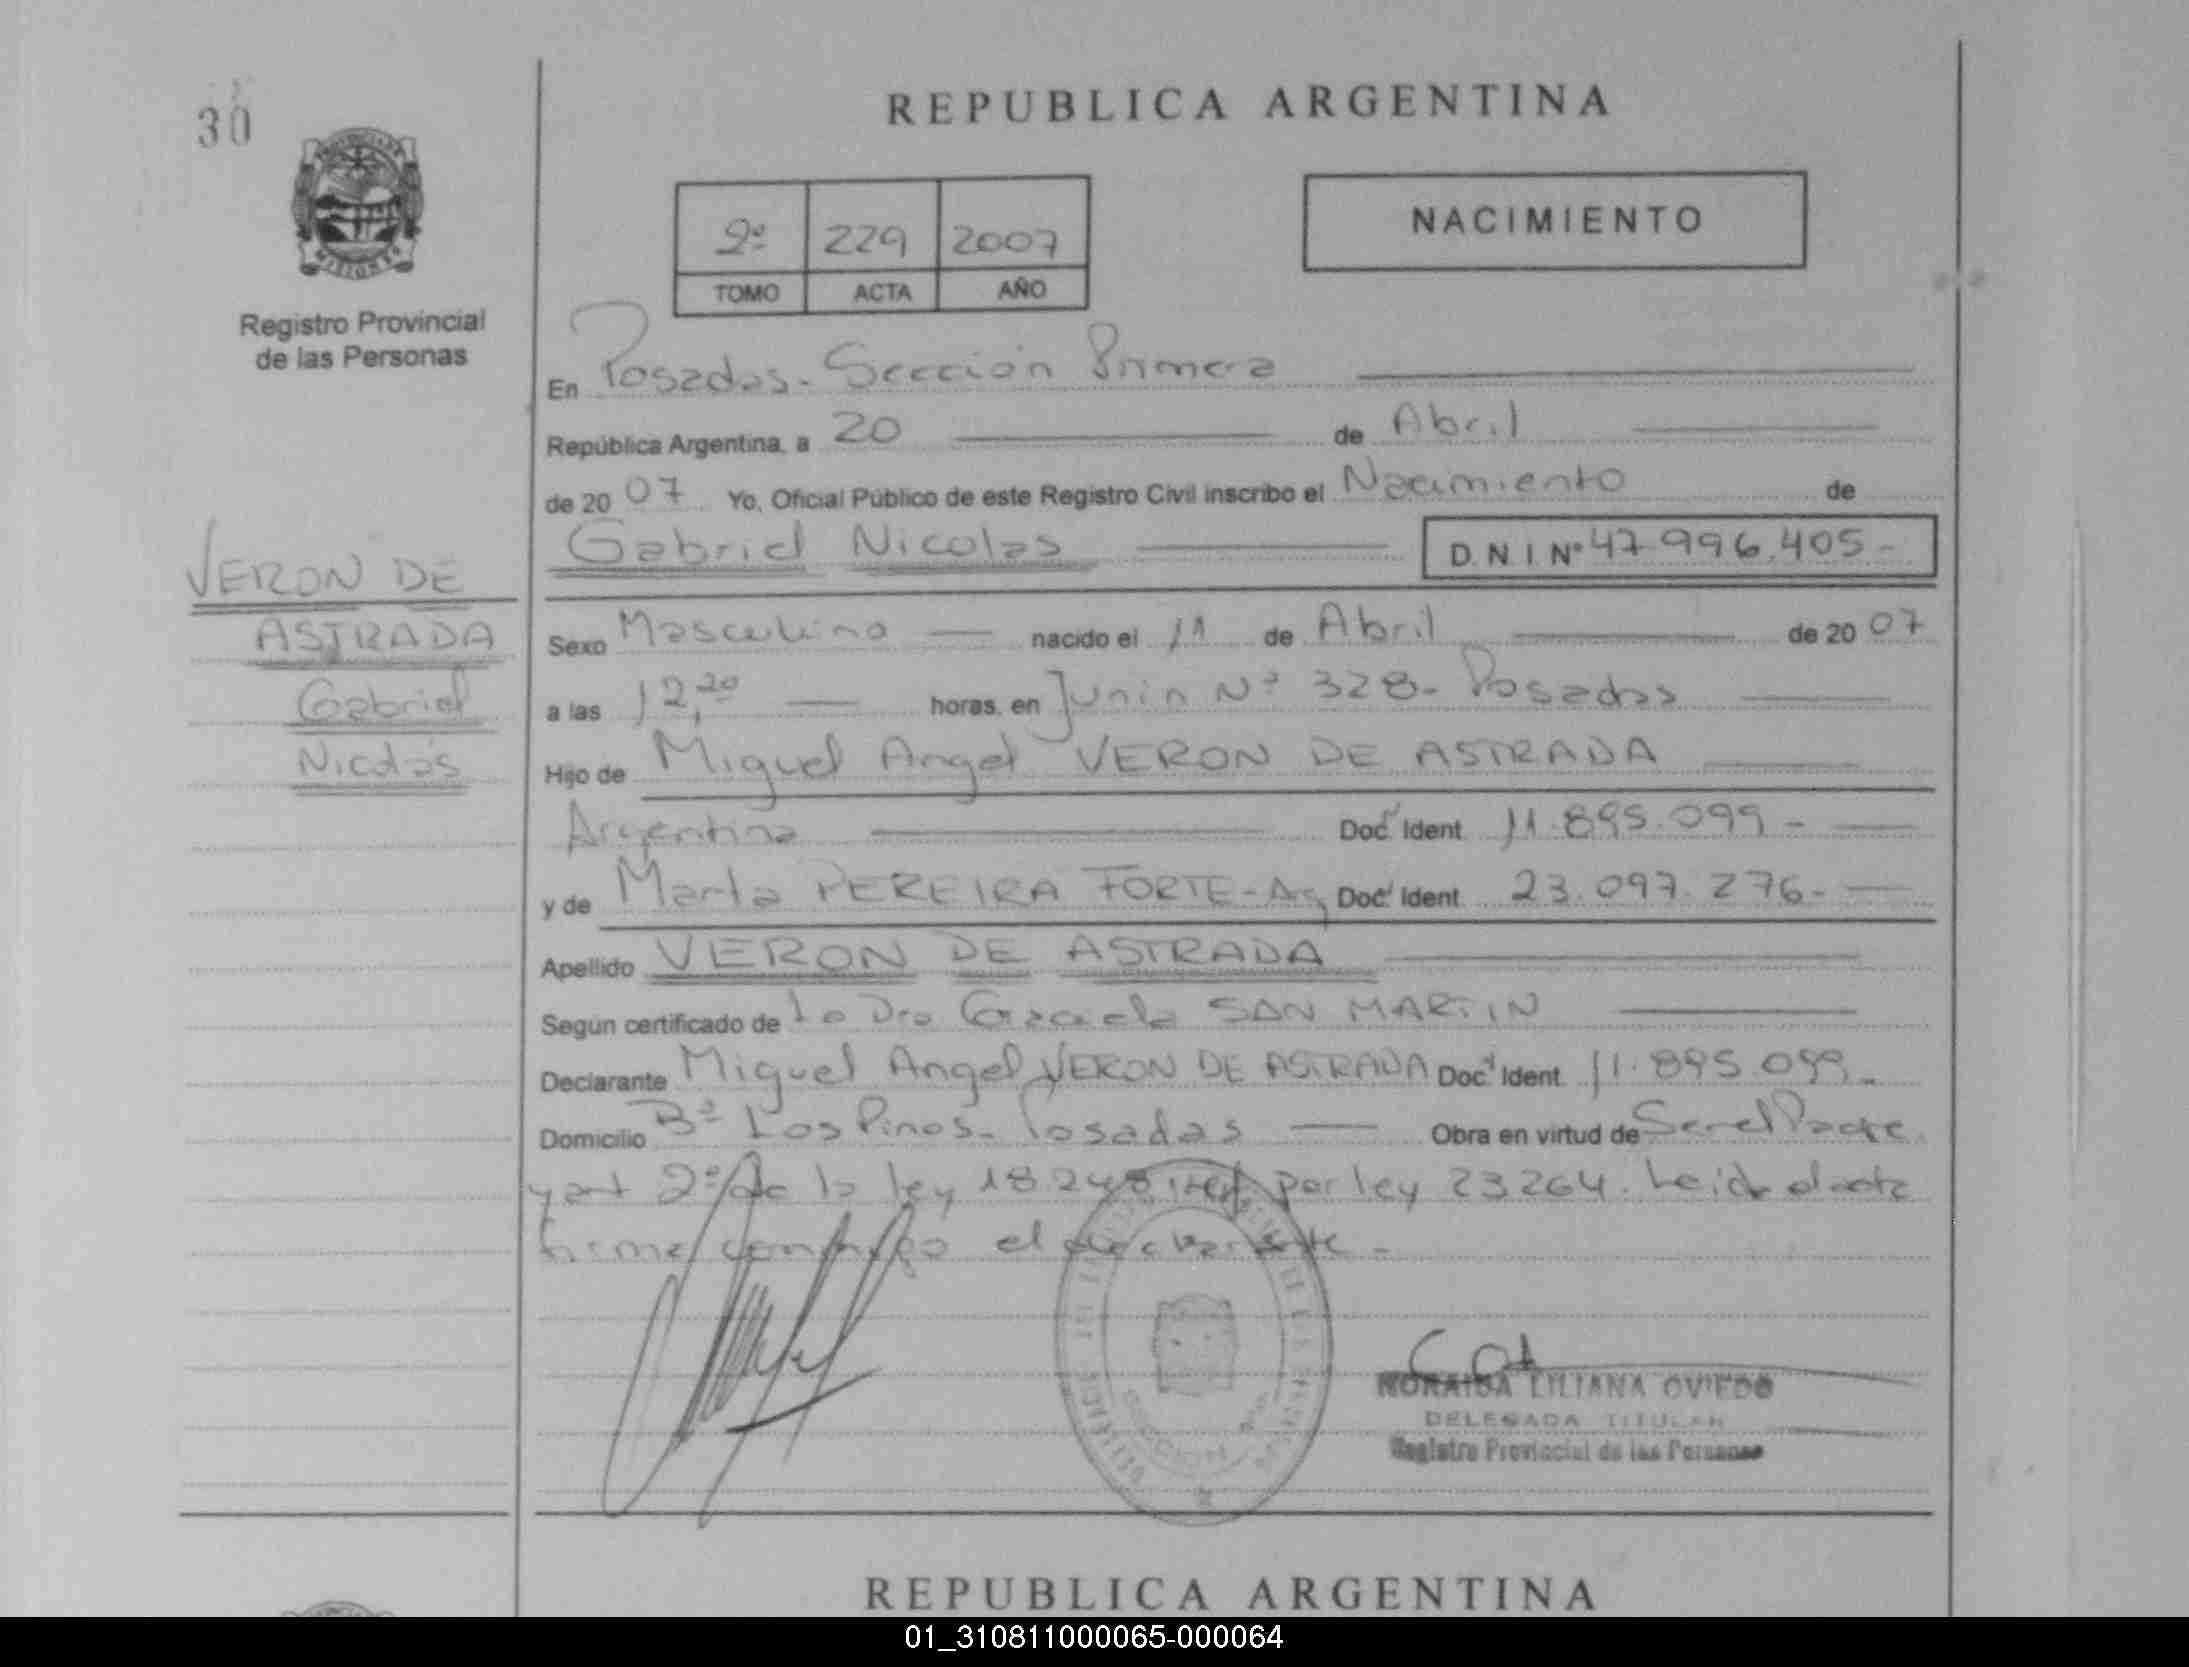 30
REPUBLICA ARGENTINA
PROVINCIA DE
MISIONES
Registro Provincial
de las Personas
2º 229 2007
TOMO ACTA AÑO
NACIMIENTO
En Posadas - Sección Primera
República Argentina, a 20 de Abril
de 20 07 Yo, Oficial Público de este Registro Civil inscribo el Nacimiento de
Gabriel Nicolas D.N.I Nº 47.996.405-
VERON DE
ASTRADA
Gabriel
Nicolás
Sexo Masculino nacido el 11 de Abril de 20 07
a las 12,20 horas, en Junin Nº 328 - Posadas
Hijo de Miguel Angel VERON DE ASTRADA
Argentina Doc. Ident. 11.895.099 -
y de Marta PEREIRA FORTE - Arg Doc. Ident. 23.097.276 -
Apellido VERON DE ASTRADA
Según certificado de la Dra Graciela SAN MARTIN
Declarante Miguel Angel VERON DE ASTRADA Doc. Ident. 11.895.099 -
Domicilio Bº Los Pinos - Posadas Obra en virtud de Ser el Padre
y art 2º de la ley 18248 por ley 23264. Leida el acta
firma conmigo el declarante -
SECCION
NORAIDA LILIANA OVIEDO
DELEGADA TITULAR
Registro Provincial de las Personas
REPUBLICA ARGENTINA
01_310811000065-000064